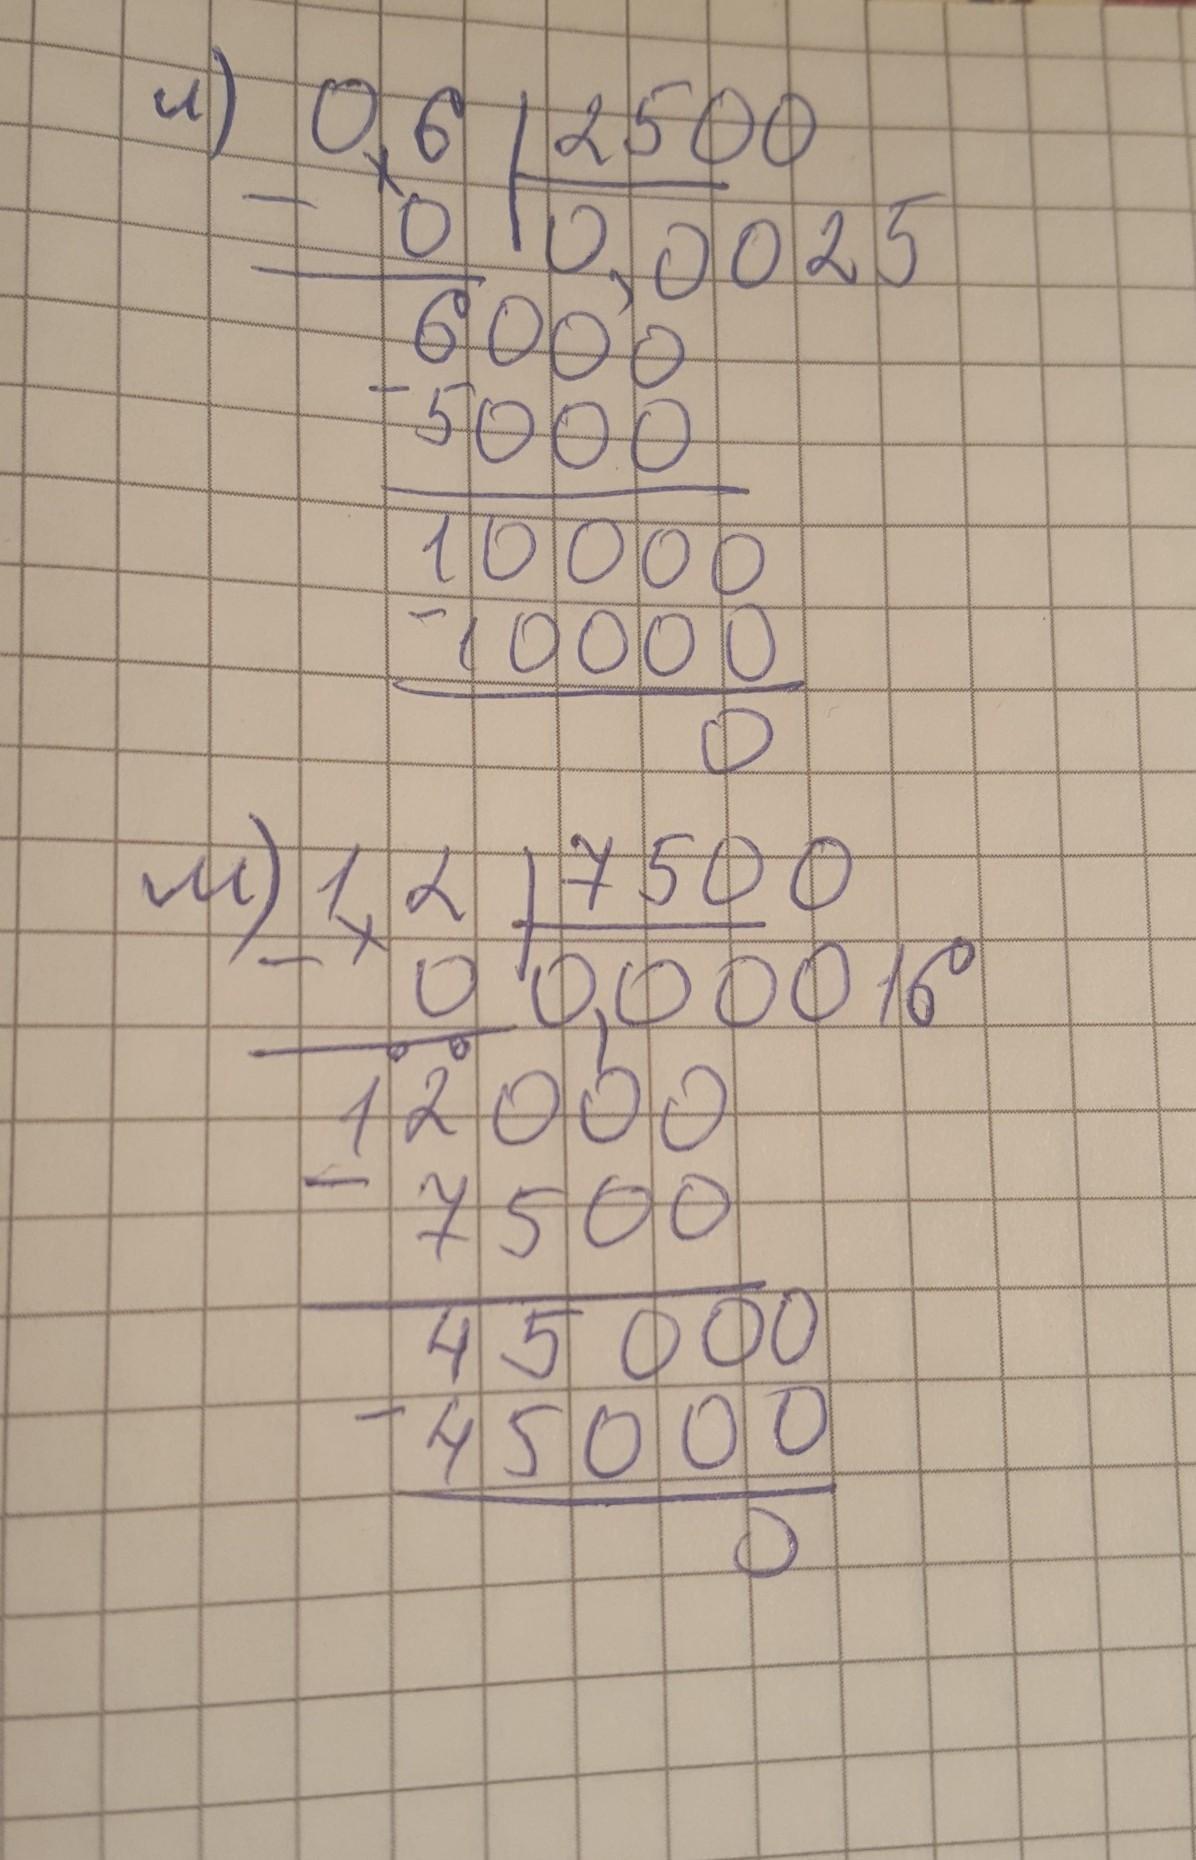 л) 0,6 | 2500
- 0 | 0,0025
6000
- 5000
10000
- 10000
0
м) 1,2 | 7500
- 0 0,00016
12000
- 7500
45000
- 45000
0